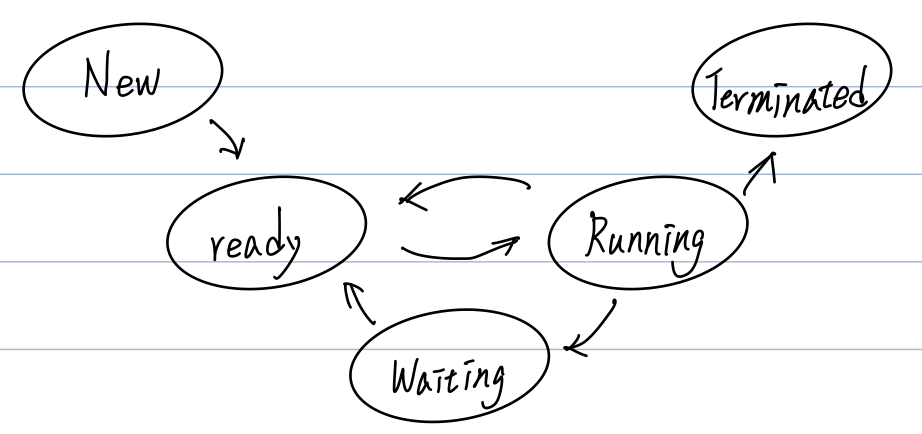 New
Terminated
ready
Running
Waiting